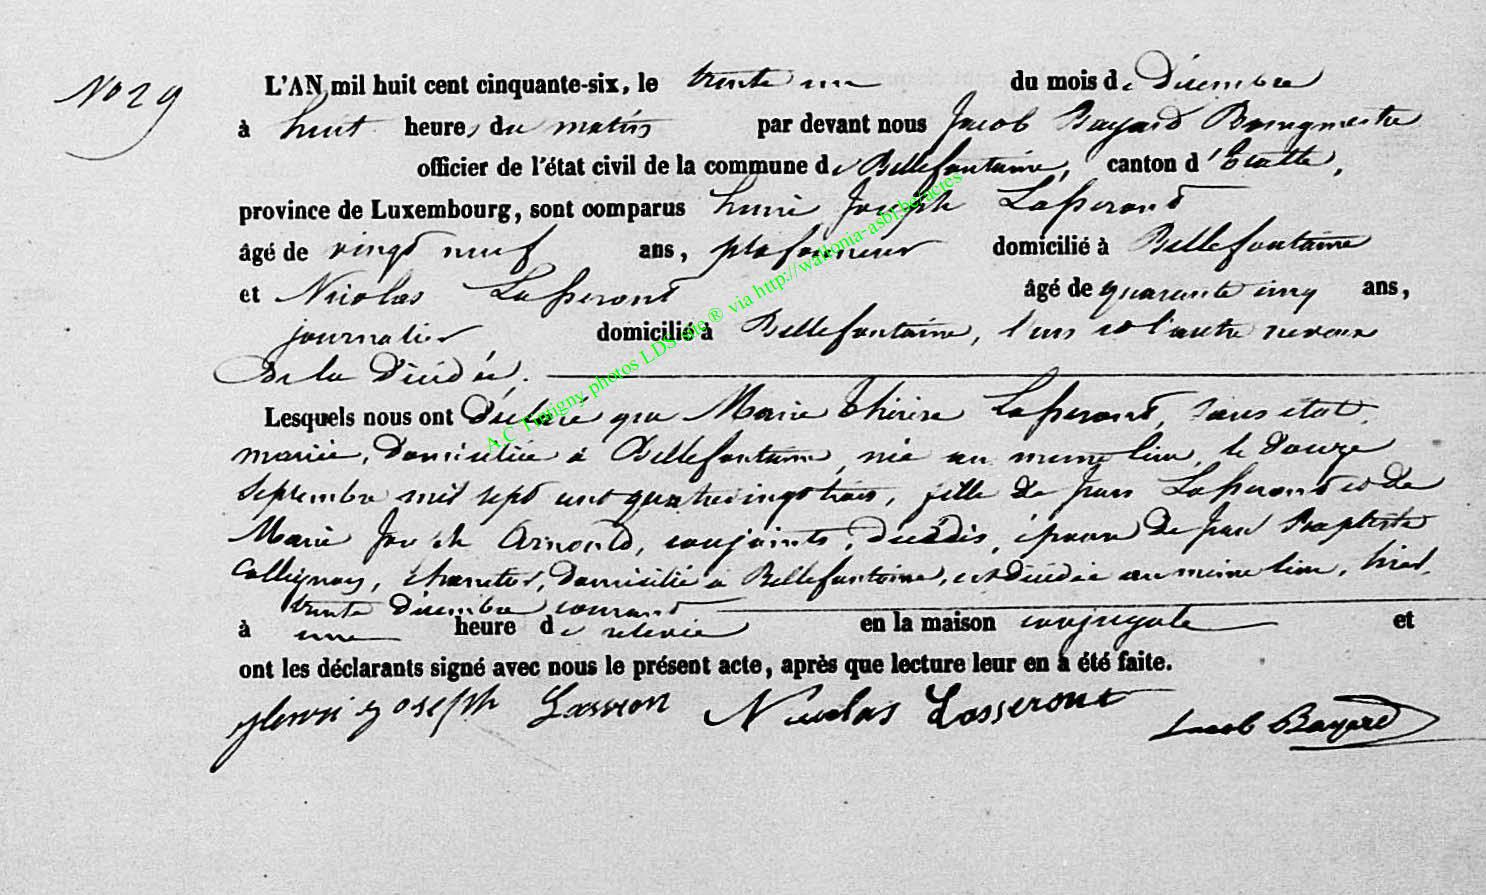 No 29
L'AN mil huit cent cinquante-six, le trente un du mois de Décembre
à huit heures du matin par devant nous Jacob Bayard Bourgmestre
officier de l'état civil de la commune de Bellefontaine, canton d'Etalle,
province de Luxembourg, sont comparus henri Joseph Lasseront
âgé de vingt neuf ans, plafonneur domicilié à Bellefontaine
et Nicolas Lasseront âgé de quarante cinq ans,
journalier domicilié à Bellefontaine, l'un et l'autre neveux
de la Décédée.
Lesquels nous ont Déclaré que Marie thérèse Lasseront, sans état,
mariée, Domiciliée à Bellefontaine, née au même lieu, le Douze
Septembre mil sept cent quatrevingt trois, fille de Jean Lasseront et de
Marie Joseph Arnould, conjoints, décédés, épouse de Jean Baptiste
Collignon, Domicilié à Bellefontaine, est décédée au même lieu, hier,
trente Décembre courant
à une heure de relevée en la maison conjugale et
ont les déclarants signé avec nous le présent acte, après que lecture leur en a été faite.
henri joseph Lasseron Nicolas Losseront Jacob Bayard
A.C Tintigny photos LDS ® via http://wallonia-asbl.be/actes